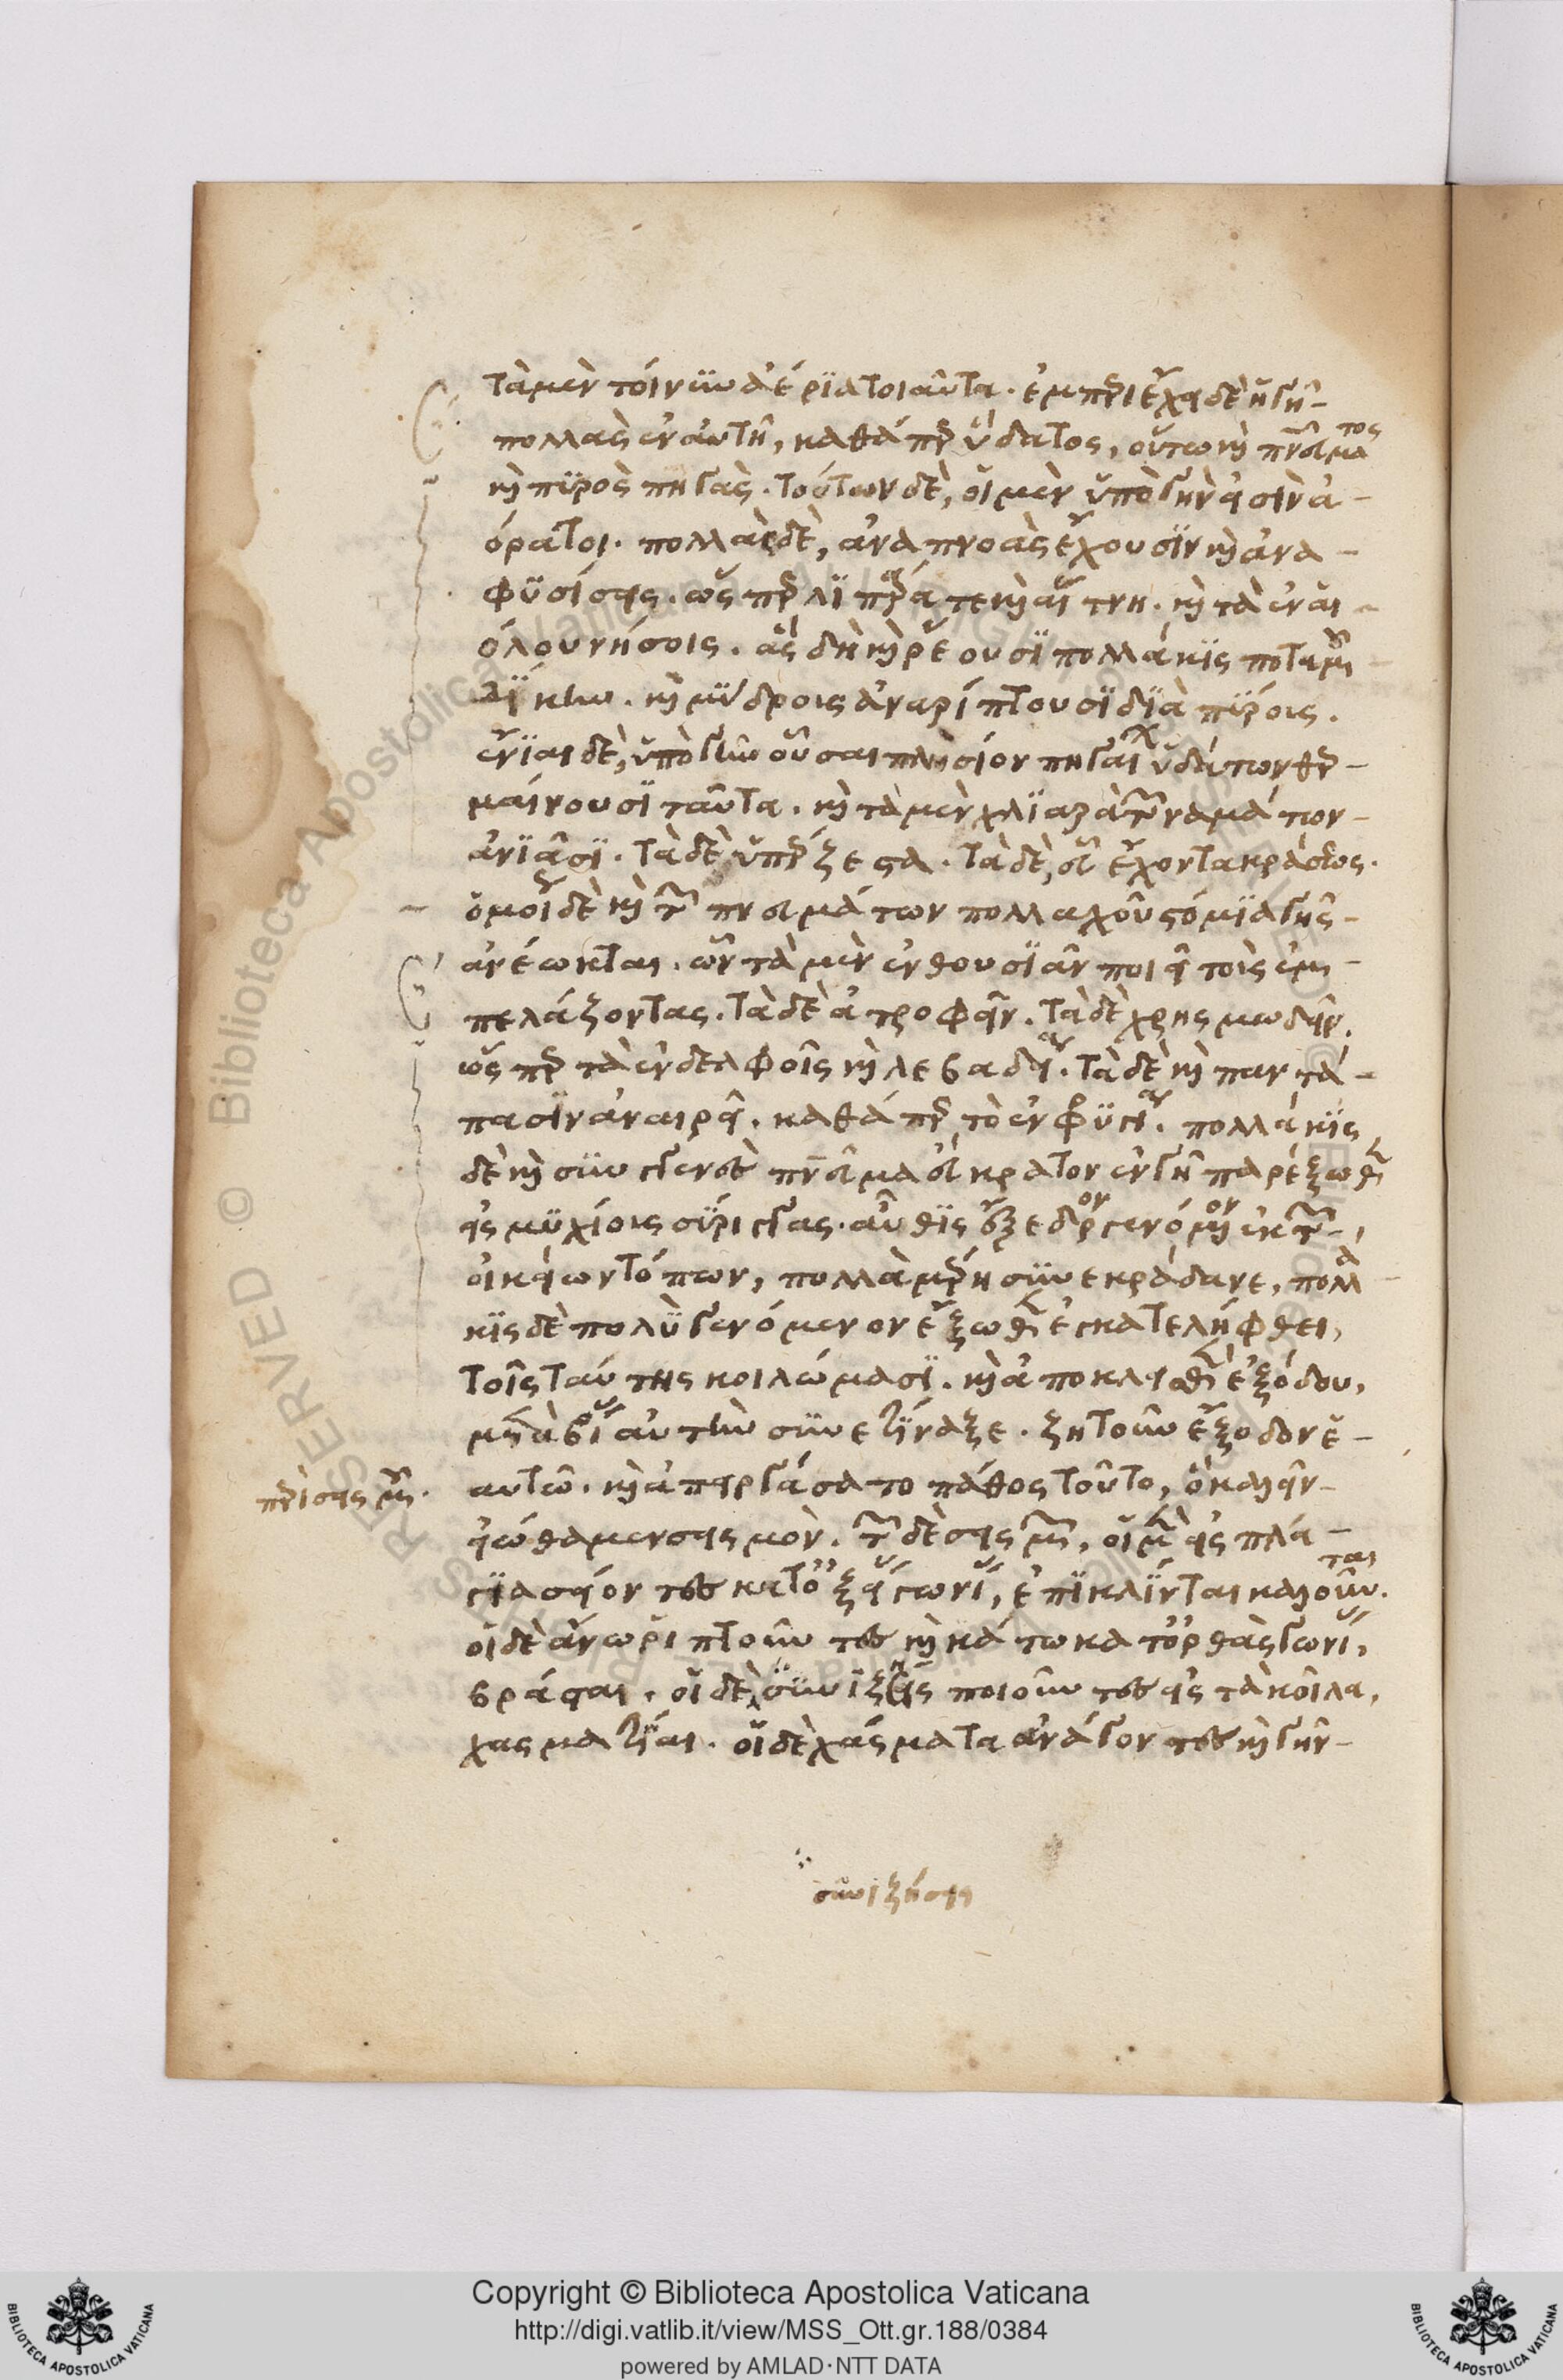 τὰ μὲν τοίνυν ἀέρια τοιαῦτα. ἐμπεριέχει δὲ ἡ γῆ
πολλὰς ἐν αὐτῆ, καθάπερ ὕδατος, οὕτω καὶ πνεύματος
καὶ πυρὸς πηγάς. τούτων δὲ, αἱ μὲν ὑπὸ γῆν εἰσὶν ἀ-
όρατοι. πολλαὶ δὲ, ἀναπνοὰς ἔχουσιν καὶ ἀνα-
φυσήσεις. ὥσπερ λιπάρα τε καὶ αἴτνη. καὶ τὰ ἐν αἰ-
όλου νήσοις. αἳ δὴ καὶ ῥέουσι πολλάκις ποταμοῦ
δίκην. καὶ μύδρους ἀναρίπτουσι διαπύρους.
ἔνιαι δὲ, ὑπὸ γῆν οὖσαι πλησίον πηγαίων ὑδάτων θερ-
μαίνουσι ταῦτα. καὶ τὰ μὲν χλιαρὰ τῶν ναμάτων
ἀνιᾶσι. τὰ δὲ ὑπέρζεστα. τὰ δὲ, εὖ ἔχοντα κράσεως.
ὁμοίως δὲ καὶ τῶν πνευμάτων πολλαχοῦ στόμια γῆς
ἀνέωκται. ὧν τὰ μὲν ἐνθουσιᾶν ποιεῖ τοὺς ἐμ-
πελάζοντας. τὰ δὲ ἀτροφεῖν. τὰ δὲ χρησμωδεῖν.
ὥσπερ τὰ ἐν δελφοῖς καὶ λεβαδεία. τὰ δὲ καὶ παντά-
πασιν ἀναιρεῖ. καθάπερ τὸ ἐν φρυγία. πολλάκις
δὲ καὶ συγγενὲς πνεῦμα εὔκρατον ἐν γῆ παρεξωσθὲν
εἰς μυχίους σύριγγας. αὖθις ἔξεδρον γενόμενον ἐκ τῶν
οἰκείων τόπων, πολλὰ μέρη συνεκράδανε, πολλά
κις δὲ πολὺ γενόμενον ἔξωθεν ἐγκατελήφθη
τοῖς ταύτης κοιλώμασι. καὶ ἀποκλεισθὲν ἐξόδου,
μετὰ βίας αὐτὴν συνετίναξε. ζητοῦν ἔξοδον ἑ-
αυτῶ. καὶ ἀπειργάσατο πάθος τοῦτο, ὃ καλεῖν
εἰώθαμεν σεισμόν. τῶν δὲ σεισμῶν, οἱ μὲν εἰς πλά-
περὶ σεισμῶν.
για σείοντες κατ' ὀξείας γωνίας, ἐπικλίνται καλοῦνται.
οἱ δὲ ἄνω ῥιπτοῦντες καὶ κάτω κατ' ὀρθὰς γωνίας,
βράσται. οἱ δὲ συνιζήσεις ποιοῦντες εἰς τὰ κοῖλα,
χασματίαι. οἱ δὲ χάσματα ἀνάγοντες καὶ γῆν
συνιζήσεις
Copyright © Biblioteca Apostolica Vaticana
http://digi.vatlib.it/view/MSS_Ott.gr.188/0384
powered by AMLAD·NTT DATA